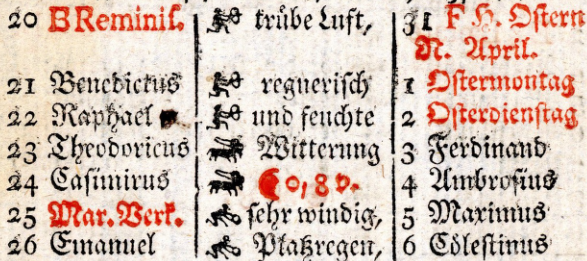 20 B Reminiſ. trübe Luft, 31 F H. Oſtern
N. April.
21 Benedictus regneriſch 1 Oſtermontag
22 Raphael und feuchte 2 Oſterdienſtag
23 Theodoricus Witterung 3 Ferdinand
24 Caſimirus 0, 8 v. 4 Ambroſius
25 Mar. Verk. ſehr windig, 5 Maximus
26 Emanuel Platzregen, 6 Cöleſtinus